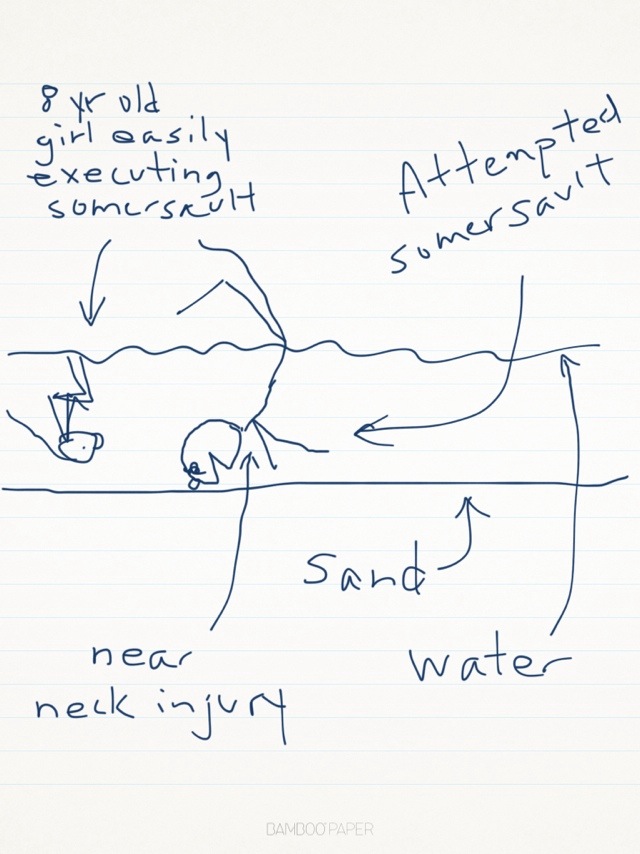 8 yr old
girl easily
executing
somersault
Attempted
somersault
sand
near
neck injury
water
BAMBOO PAPER